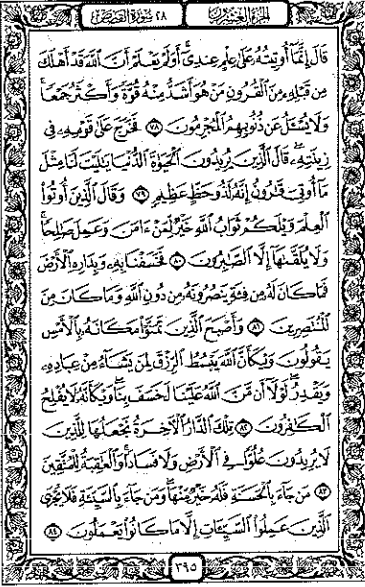 الجزء العشرون ٢٨ سورة القصص
قَالَ إِنَّمَآ أُوتِيتُهُۥ عَلَىٰ عِلْمٍ عِندِىٓ أَوَلَمْ يَعْلَمْ أَنَّ ٱللَّهَ قَدْ أَهْلَكَ
مِن قَبْلِهِۦ مِنَ ٱلْقُرُونِ مَنْ هُوَ أَشَدُّ مِنْهُ قُوَّةً وَأَكْثَرُ جَمْعًا
وَلَا يُسْـَٔلُ عَن ذُنُوبِهِمُ ٱلْمُجْرِمُونَ ٧٨ فَخَرَجَ عَلَىٰ قَوْمِهِۦ فِى
زِينَتِهِۦ قَالَ ٱلَّذِينَ يُرِيدُونَ ٱلْحَيَوٰةَ ٱلدُّنْيَا يَـٰلَيْتَ لَنَا مِثْلَ
مَآ أُوتِىَ قَـٰرُونُ إِنَّهُۥ لَذُو حَظٍّ عَظِيمٍ ٧٩ وَقَالَ ٱلَّذِينَ أُوتُوا۟
ٱلْعِلْمَ وَيْلَكُمْ ثَوَابُ ٱللَّهِ خَيْرٌ لِّمَنْ ءَامَنَ وَعَمِلَ صَـٰلِحًا
وَلَا يُلَقَّىٰهَآ إِلَّا ٱلصَّـٰبِرُونَ ٨٠ فَخَسَفْنَا بِهِۦ وَبِدَارِهِ ٱلْأَرْضَ
فَمَا كَانَ لَهُۥ مِن فِئَةٍ يَنصُرُونَهُۥ مِن دُونِ ٱللَّهِ وَمَا كَانَ مِنَ
ٱلْمُنتَصِرِينَ ٨١ وَأَصْبَحَ ٱلَّذِينَ تَمَنَّوْا۟ مَكَانَهُۥ بِٱلْأَمْسِ
يَقُولُونَ وَيْكَأَنَّ ٱللَّهَ يَبْسُطُ ٱلرِّزْقَ لِمَن يَشَآءُ مِنْ عِبَادِهِۦ
وَيَقْدِرُ لَوْلَآ أَن مَّنَّ ٱللَّهُ عَلَيْنَا لَخَسَفَ بِنَا وَيْكَأَنَّهُۥ لَا يُفْلِحُ
ٱلْكَـٰفِرُونَ ٨٢ تِلْكَ ٱلدَّارُ ٱلْـَٔاخِرَةُ نَجْعَلُهَا لِلَّذِينَ
لَا يُرِيدُونَ عُلُوًّا فِى ٱلْأَرْضِ وَلَا فَسَادًا وَٱلْعَـٰقِبَةُ لِلْمُتَّقِينَ
٨٣ مَن جَآءَ بِٱلْحَسَنَةِ فَلَهُۥ خَيْرٌ مِّنْهَا وَمَن جَآءَ بِٱلسَّيِّئَةِ فَلَا يُجْزَى
ٱلَّذِينَ عَمِلُوا۟ ٱلسَّيِّـَٔاتِ إِلَّا مَا كَانُوا۟ يَعْمَلُونَ ٨٤
٣٩٥